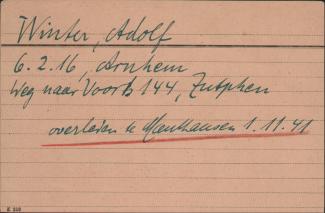 Winter, Adolf
6.2.16, Arnhem,
Weg naar Voorst 144, Zutphen
overleden te Mauthausen 1.11.41
K 308